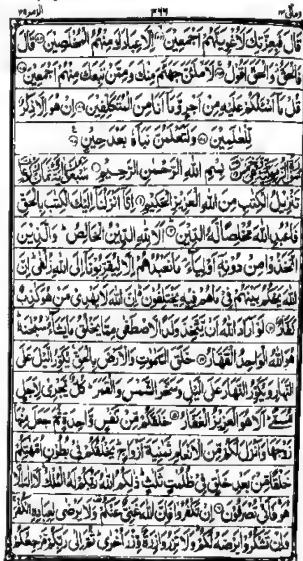 ومالی ۲۳ ۳۶۶ الزمر ۳۹
قَالَ فَبِعِزَّتِكَ لَأُغْوِيَنَّهُمْ أَجْمَعِينَ إِلَّا عِبَادَكَ مِنْهُمُ الْمُخْلَصِينَ قَالَ
فَالْحَقُّ وَالْحَقَّ أَقُولُ لَأَمْلَأَنَّ جَهَنَّمَ مِنْكَ وَمِمَّنْ تَبِعَكَ مِنْهُمْ أَجْمَعِينَ
قُلْ مَا أَسْأَلُكُمْ عَلَيْهِ مِنْ أَجْرٍ وَمَا أَنَا مِنَ الْمُتَكَلِّفِينَ إِنْ هُوَ إِلَّا ذِكْرٌ
لِلْعَالَمِينَ وَلَتَعْلَمُنَّ نَبَأَهُ بَعْدَ حِينٍ
بِسْمِ اللَّهِ الرَّحْمَٰنِ الرَّحِيمِ
تَنْزِيلُ الْكِتَابِ مِنَ اللَّهِ الْعَزِيزِ الْحَكِيمِ إِنَّا أَنْزَلْنَا إِلَيْكَ الْكِتَابَ بِالْحَقِّ
فَاعْبُدِ اللَّهَ مُخْلِصًا لَهُ الدِّينَ أَلَا لِلَّهِ الدِّينُ الْخَالِصُ وَالَّذِينَ
اتَّخَذُوا مِنْ دُونِهِ أَوْلِيَاءَ مَا نَعْبُدُهُمْ إِلَّا لِيُقَرِّبُونَا إِلَى اللَّهِ زُلْفَىٰ إِنَّ
اللَّهَ يَحْكُمُ بَيْنَهُمْ فِي مَا هُمْ فِيهِ يَخْتَلِفُونَ إِنَّ اللَّهَ لَا يَهْدِي مَنْ هُوَ كَاذِبٌ
كَفَّارٌ لَوْ أَرَادَ اللَّهُ أَنْ يَتَّخِذَ وَلَدًا لَاصْطَفَىٰ مِمَّا يَخْلُقُ مَا يَشَاءُ سُبْحَانَهُ
هُوَ اللَّهُ الْوَاحِدُ الْقَهَّارُ خَلَقَ السَّمَاوَاتِ وَالْأَرْضَ بِالْحَقِّ يُكَوِّرُ اللَّيْلَ عَلَى
النَّهَارِ وَيُكَوِّرُ النَّهَارَ عَلَى اللَّيْلِ وَسَخَّرَ الشَّمْسَ وَالْقَمَرَ كُلٌّ يَجْرِي لِأَجَلٍ
مُسَمًّى أَلَا هُوَ الْعَزِيزُ الْغَفَّارُ خَلَقَكُمْ مِنْ نَفْسٍ وَاحِدَةٍ ثُمَّ جَعَلَ مِنْهَا
زَوْجَهَا وَأَنْزَلَ لَكُمْ مِنَ الْأَنْعَامِ ثَمَانِيَةَ أَزْوَاجٍ يَخْلُقُكُمْ فِي بُطُونِ أُمَّهَاتِكُمْ
خَلْقًا مِنْ بَعْدِ خَلْقٍ فِي ظُلُمَاتٍ ثَلَاثٍ ذَٰلِكُمُ اللَّهُ رَبُّكُمْ لَهُ الْمُلْكُ لَا إِلَٰهَ إِلَّا
هُوَ فَأَنَّىٰ تُصْرَفُونَ إِنْ تَكْفُرُوا فَإِنَّ اللَّهَ غَنِيٌّ عَنْكُمْ وَلَا يَرْضَىٰ لِعِبَادِهِ الْكُفْرَ
وَإِنْ تَشْكُرُوا يَرْضَهُ لَكُمْ وَلَا تَزِرُ وَازِرَةٌ وِزْرَ أُخْرَىٰ ثُمَّ إِلَىٰ رَبِّكُمْ مَرْجِعُكُمْ